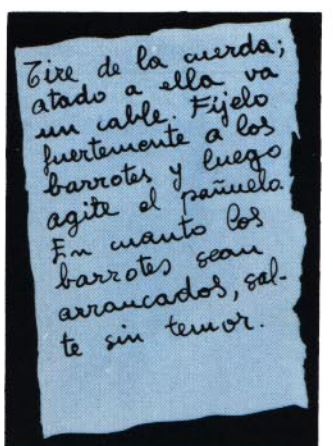 Tire de la cuerda;
atado a ella va
un cable. Fíjelo
fuertemente a los
barrotes y luego
agite el pañuelo.
En cuanto los
barrotes sean
arrancados, sal-
te sin temor.